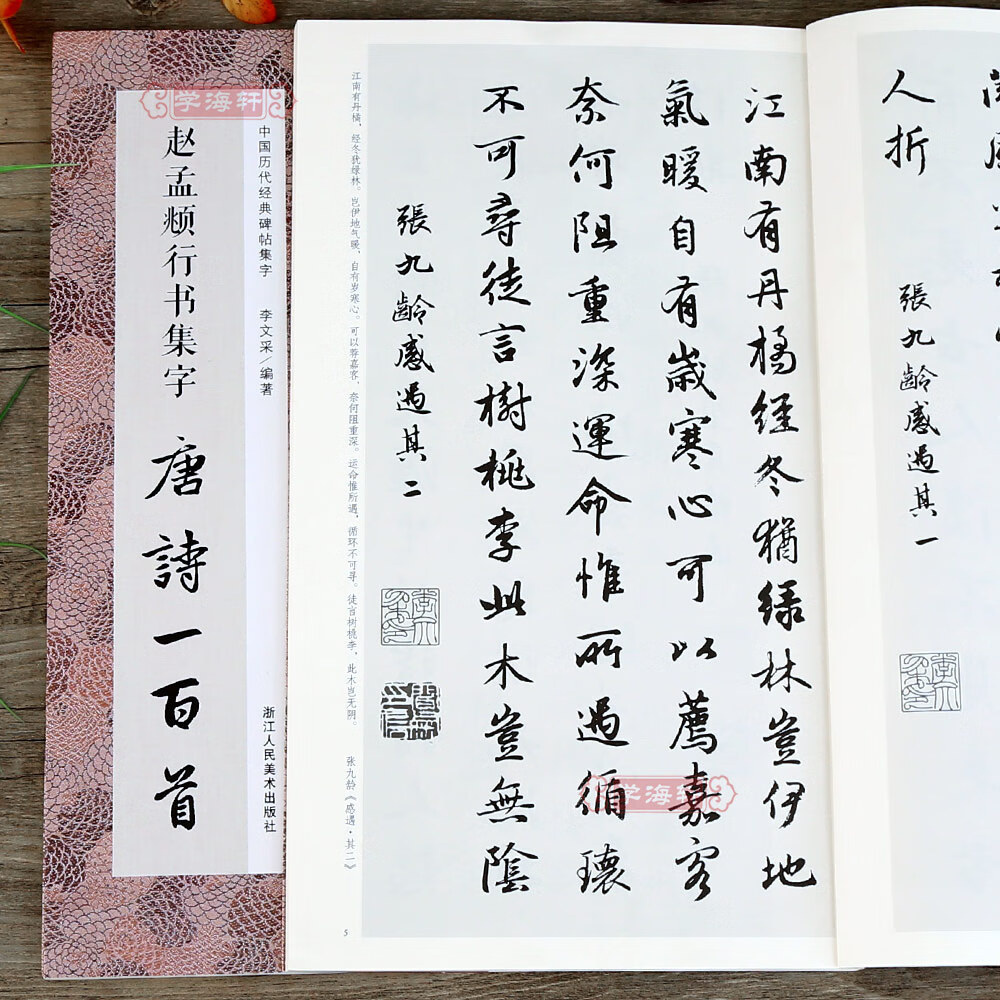 学海轩
中国历代经典碑帖集字 李文采/编著 浙江人民美术出版社
赵孟頫行书集字 唐詩一百首
人折
張九齡感遇其一
江南有丹橘經冬猶緑林豈伊地
氣暖自有歲寒心可以薦嘉客
奈何阻重深運命惟所遇循環
不可尋徒言樹桃李此木豈無陰
張九齡感遇其二
江南有丹橘，经冬犹绿林。岂伊地气暖，自有岁寒心。可以荐嘉客，奈何阻重深。运命惟所遇，循环不可寻。徒言树桃李，此木岂无阴。 张九龄《感遇·其二》
5
学海轩